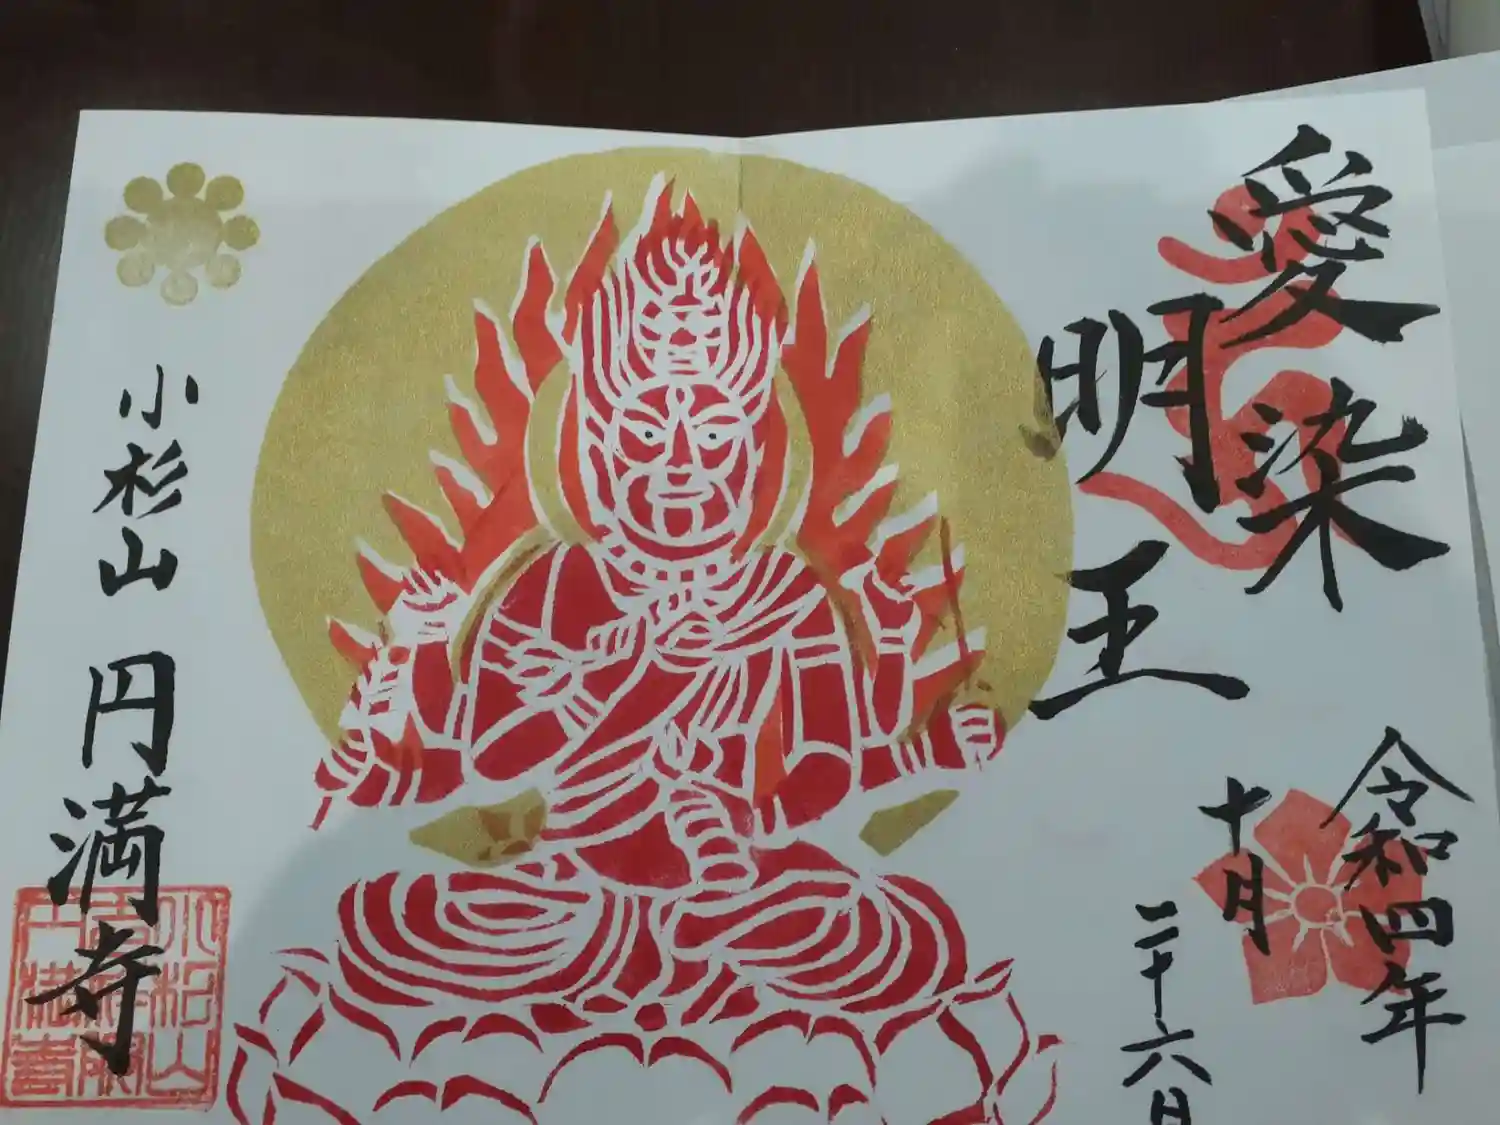 愛染
明王
令和四年
十月
二十六日
小杉山 円満寺